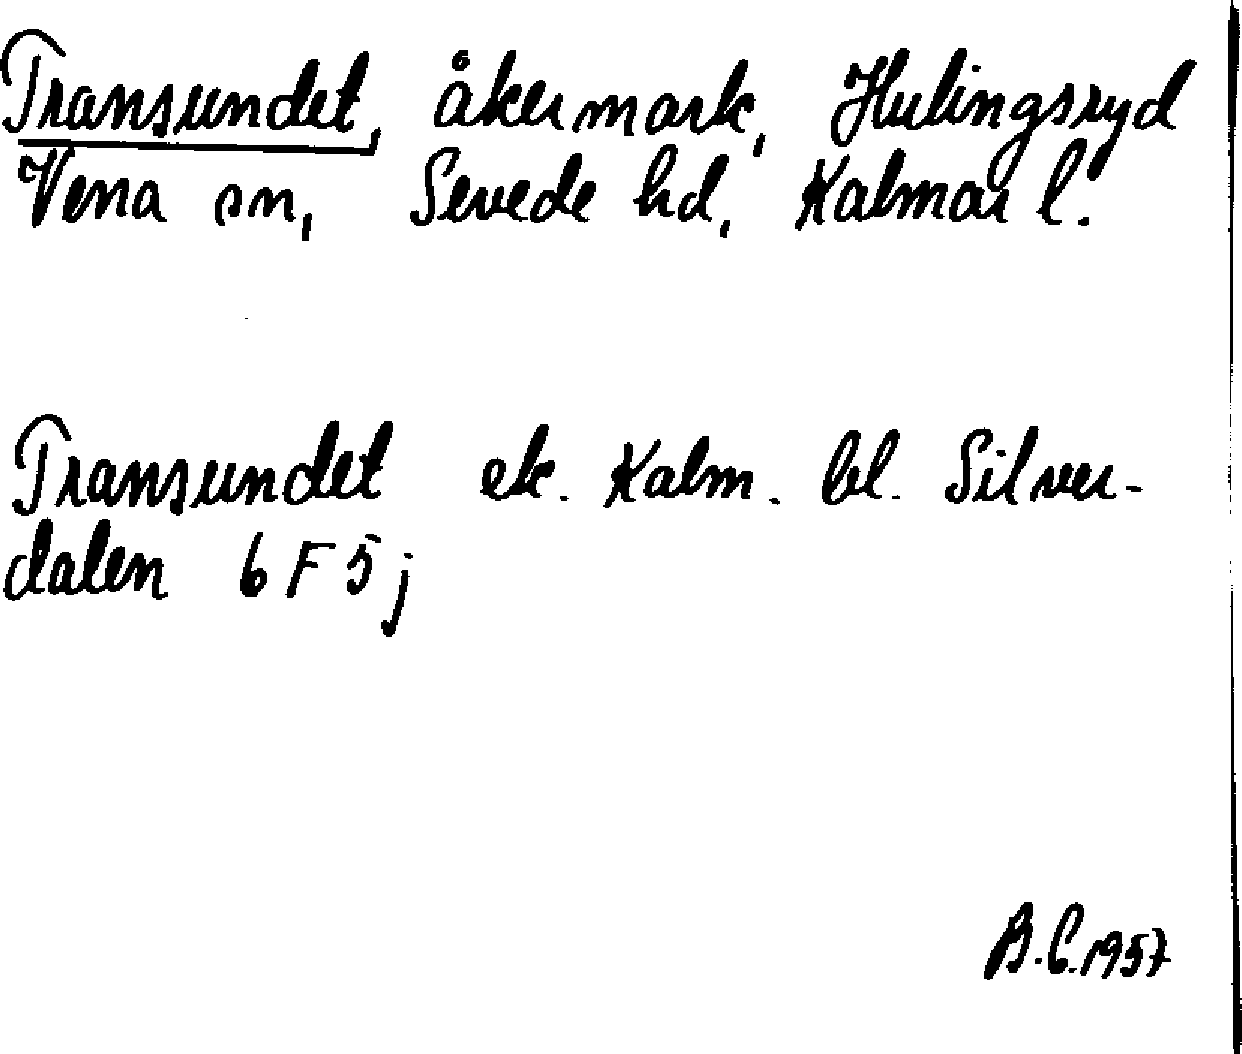 Transundet, åkermark, Hulingsryd
Vena sn, Sevede hd, Kalmar l.
Transundet ek. Kalm. bl. Silver-
dalen 6 F 5 j
B.C. 1957